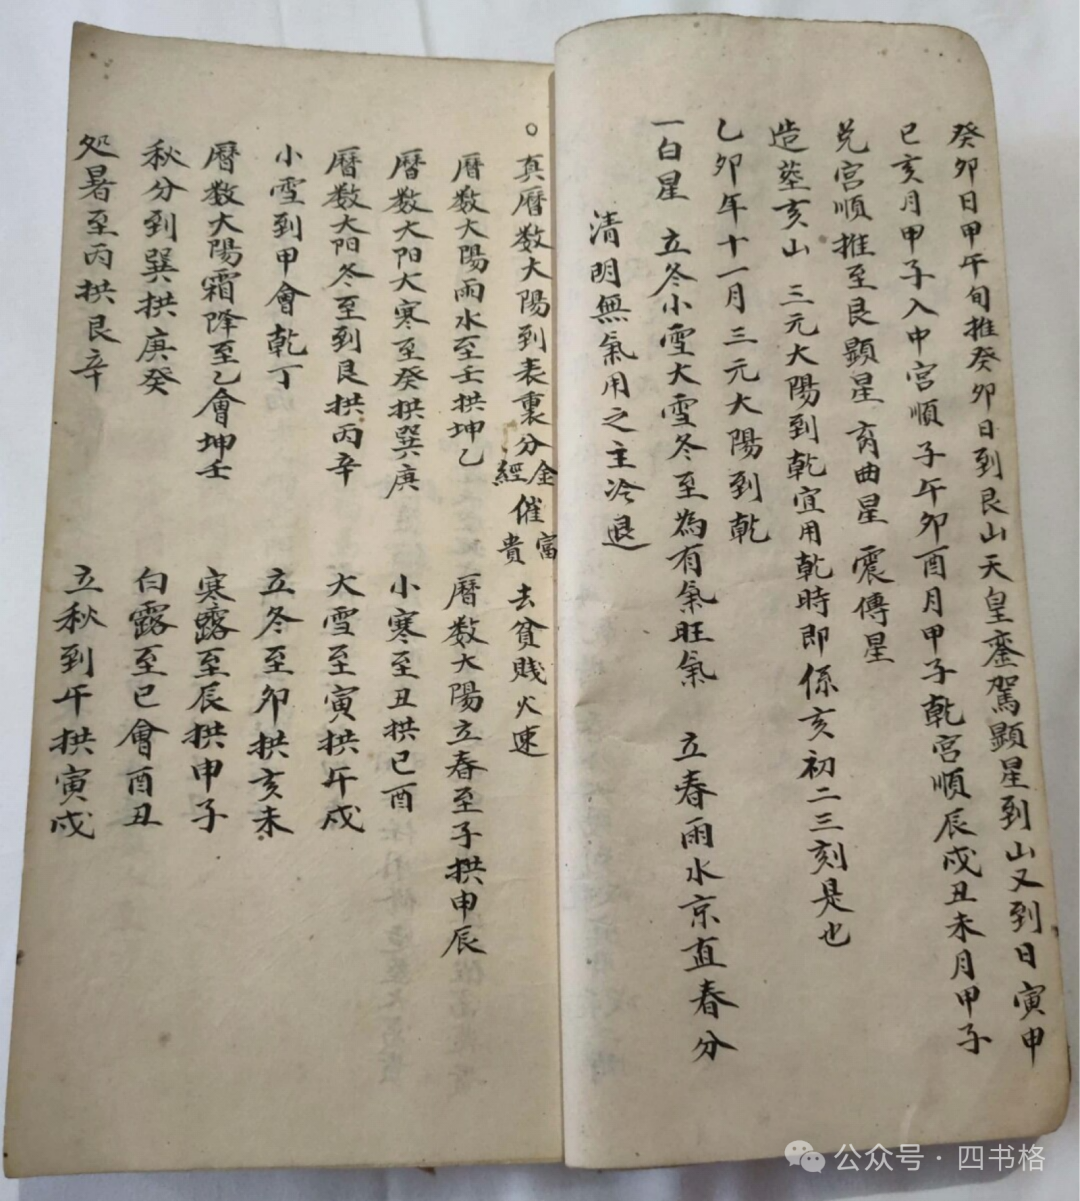 癸卯日甲午旬推癸卯日到艮山天皇銮駕顕星到山又到日寅申
已亥月甲子入中宮順子午卯酉月甲子乾宮順辰戌丑未月甲子
兑宮順推至艮顕星 育曲星 震傳星
造塟亥山 三元大陽到乾宜用乾時即係亥初二三刻是也
乙卯年十一月三元大陽到乾
一白星 立冬小雪大雪冬至為有氣旺氣 立春雨水京直春分
清明無氣用之主冷退
○真曆数大陽到表裏分金經催富貴 去貧賤火速
曆数大陽雨水至壬拱坤乙 曆数大陽立春至子拱申辰
曆数大阳大寒至癸拱巽庚 小寒至丑拱已酉
曆数大阳冬至到艮拱丙辛 大雪至寅拱午戌
小雪到甲會乾丁 立冬至卯拱亥未
曆数大陽霜降至乙會坤壬 寒露至辰拱申子
秋分到巽拱庚癸 白露至已會酉丑
処暑至丙拱艮辛 立秋到午拱寅戌
公众号·四书格